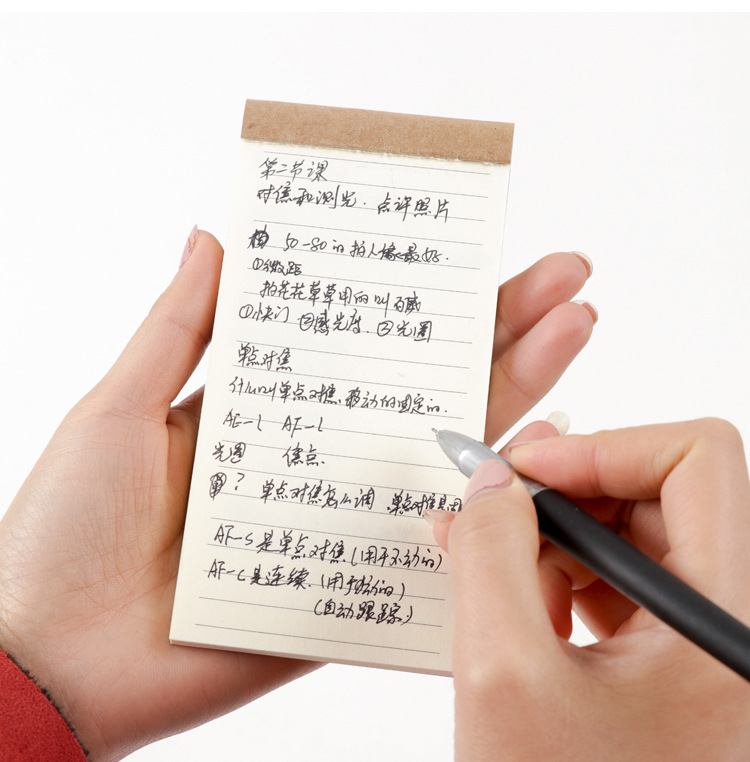 第二节课
对焦和测光. 点评照片
50-80的拍人像最好.
①微距
拍花花草草用的叫百微
①快门 ②感光度. ③光圈
单点对焦
什么叫单点对焦, 移动的固定的.
AE-L AF-L
光圈 焦点.
? 单点对焦怎么调 单点对焦
AF-S是单点对焦(用于不动的)
AF-C是连续.(用于动的)
(自动跟踪)